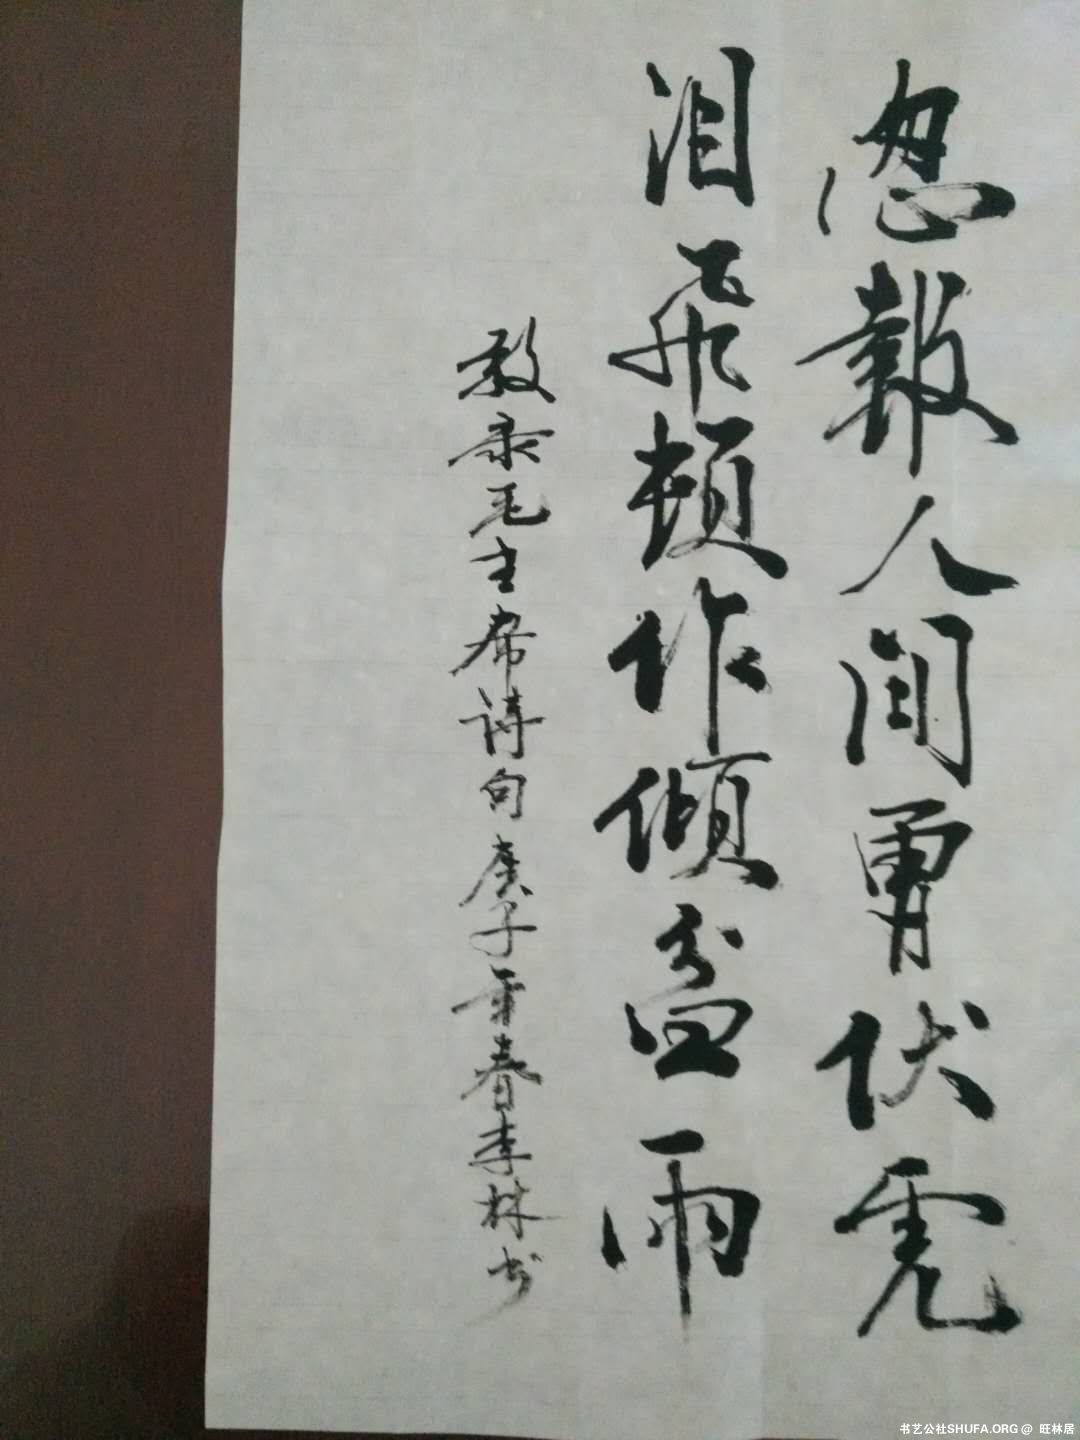 忽報人间勇伏虎
泪飛頓作傾盆雨
敬录毛主席诗句庚子年春李林书
书艺公社SHUFA.ORG @ 旺林居